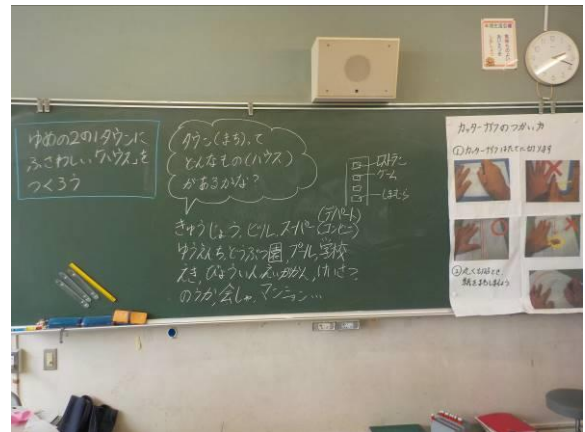 ゆめの2の1タウンに
ふさわしい「ハウス」を
つくろう
タウン(まち)って
どんなもの(ハウス)
があるかな?
レストラン
ゲーム
しまむら
きゅうじょう、ビル、スーパー(デパート)(コンビニ)
ゆうえんち、どうぶつ園、プール、学校
えき、びょういん、えいがかん、けいさつ
のうか、会しゃ、マンション…
カッターナイフのつかい方
①カッターナイフはたてに切ります
②丸く切るとき、